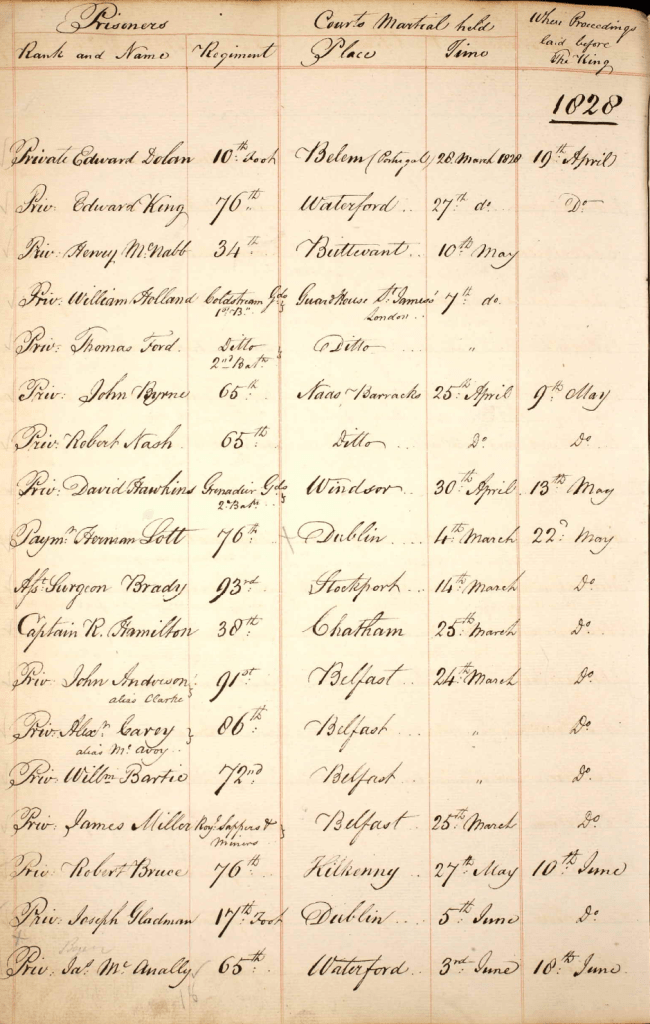 Prisoners Courts Martial held When Proceedings
laid before
Rank and Name Regiment Place Time The King
1828
Private Edward Dolan 10th Foot Belem (Portugal) 28 March 1828 19th April
Priv: Edward King 76th Waterford 27th do Do
Priv: Henry McNabb 34th Buttevant 10th May
Priv: William Holland Coldstream Gds Guard House St James' 7th do.
1st B. London
Priv: Thomas Ford. Ditto Ditto "
2nd Batn
Priv: John Byrne 65th Naas Barracks 25th April 9th May
Priv: Robert Nash 65th Ditto Do Do
Priv: David Hawkins Grenadier Gds Windsor 30th April 13th May
2d Batn
Paymr Herman Lott 76th Dublin 4th March 22d May
Asst Surgeon Brady 93rd Stockport 14th March Do
Captain R. Hamilton 38th Chatham 25th March Do
Priv: John Anderson 91st Belfast 24th March Do
alias Clarke
Priv: Alexr Carey 86th Belfast " Do
alias Mc Avoy
Priv: Willm Bartie 72nd Belfast " Do
Priv: James Miller Royl Sappers & Belfast 25th March Do
Miners
Priv: Robert Bruce 76th Kilkenny 27th May 10th June
Priv: Joseph Gladman 17th Foot Dublin 5th June Do
Priv: Jas Mc Anally 65th Waterford 3rd June 18th June